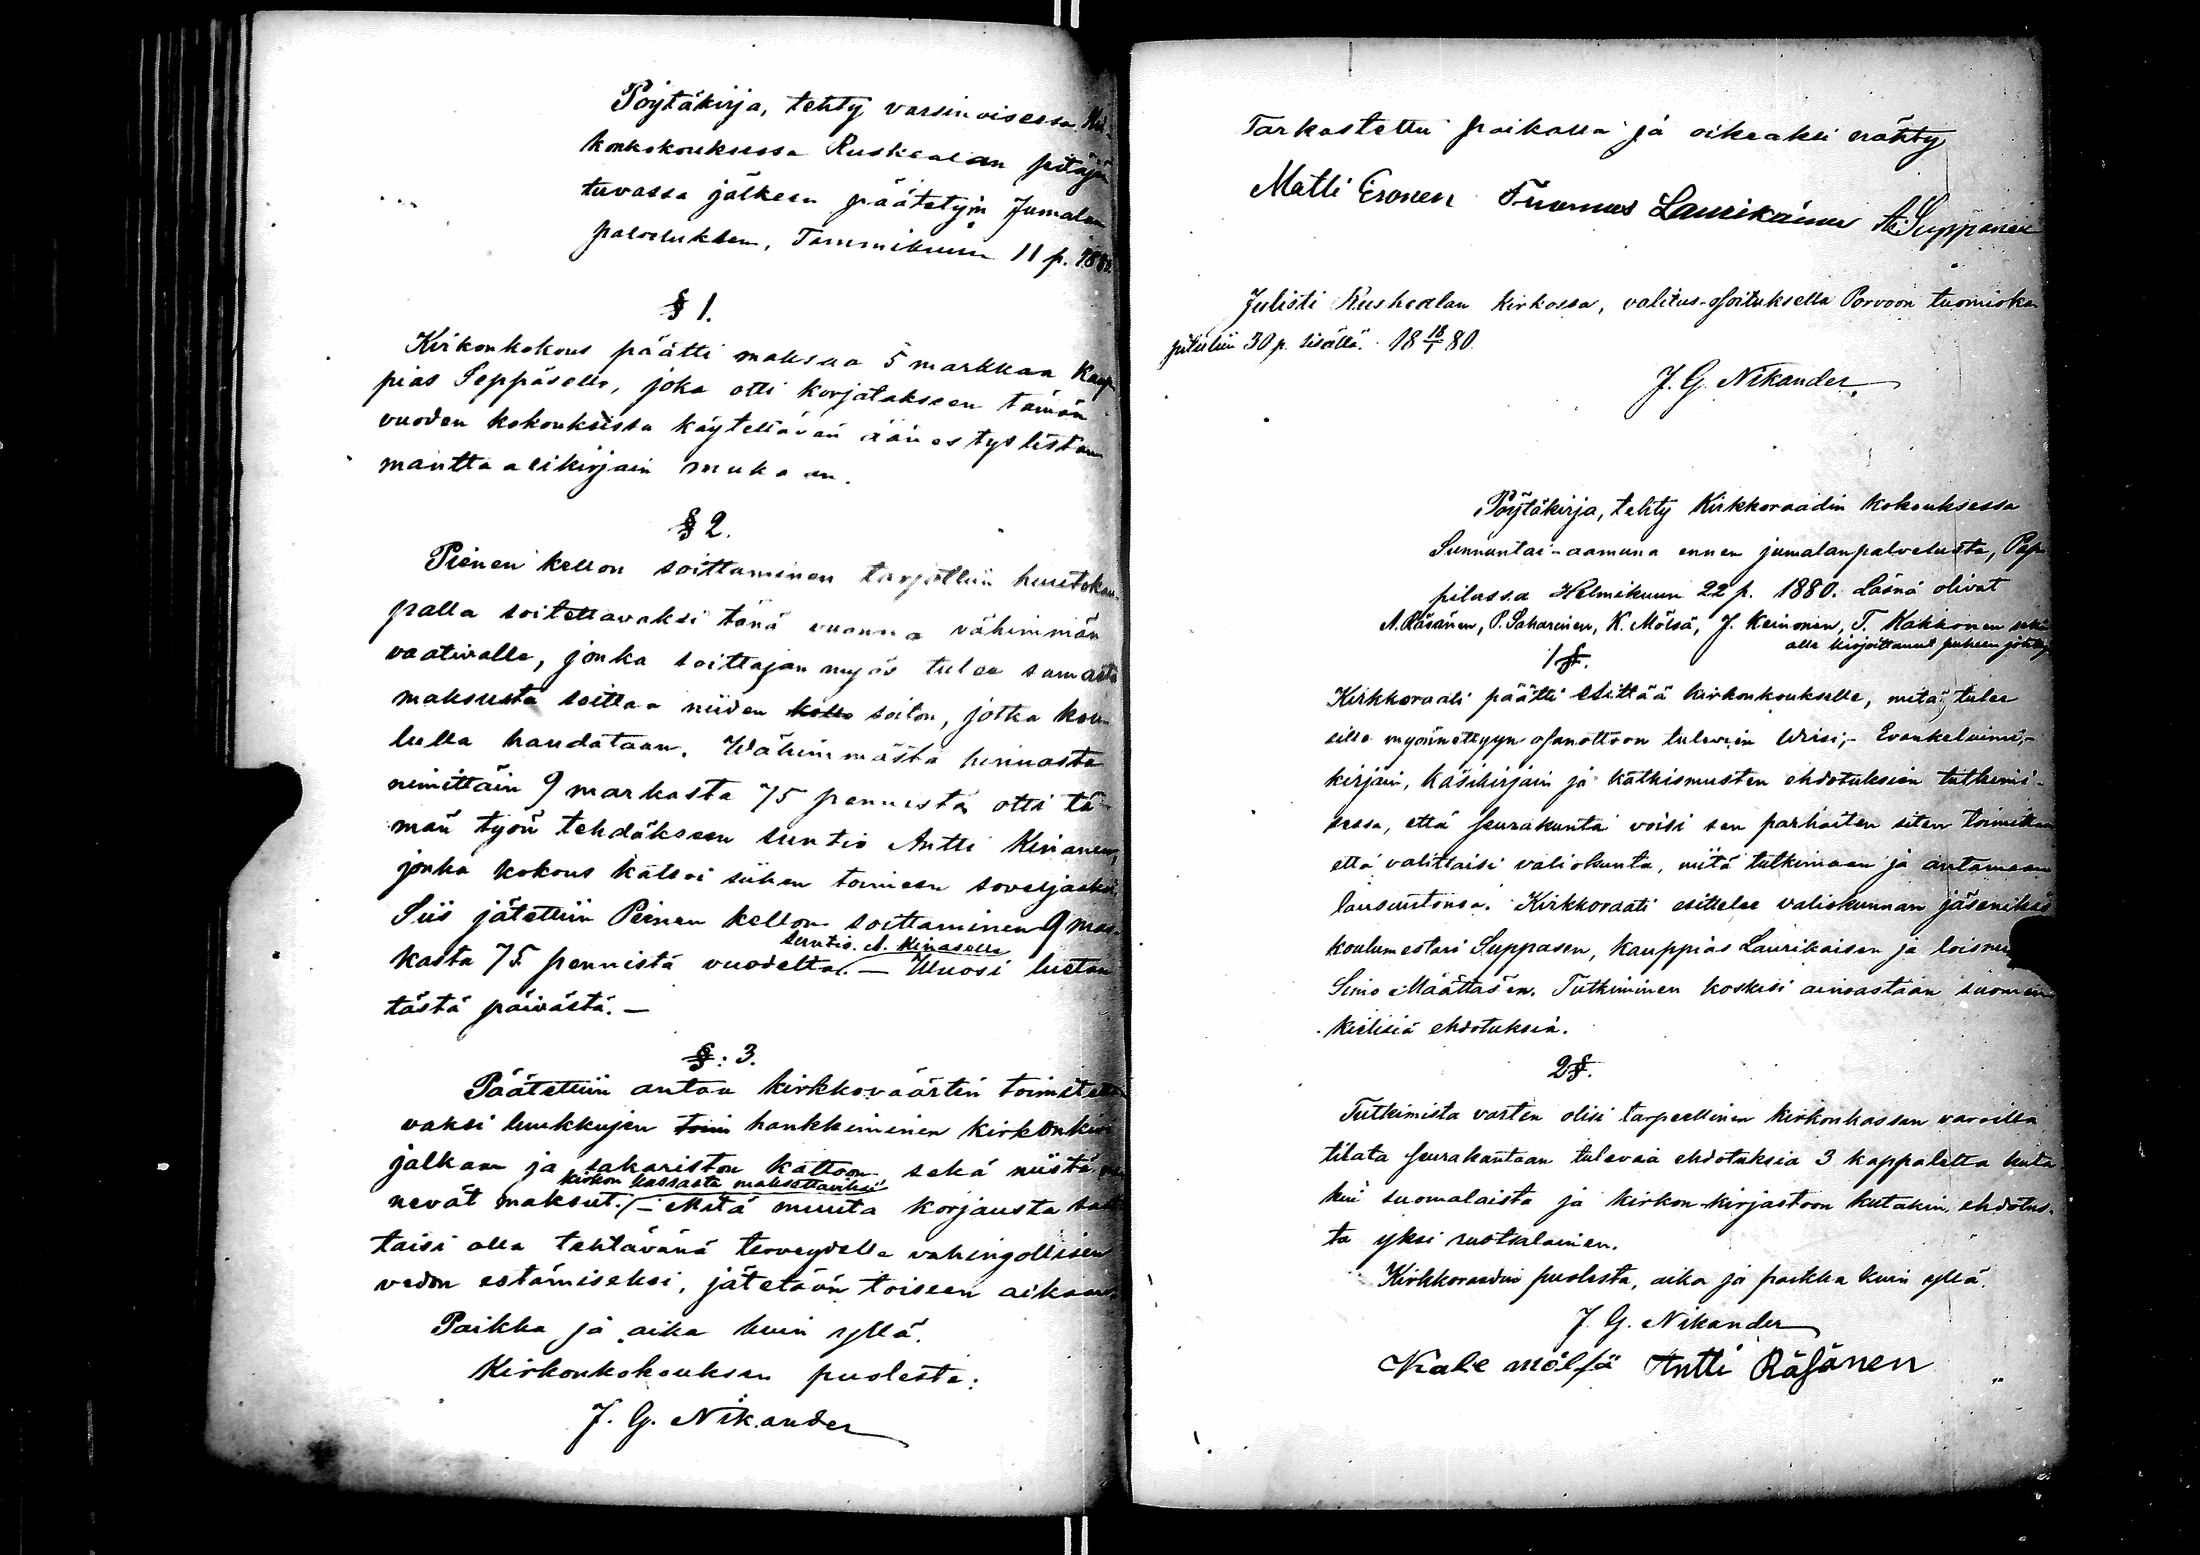 Pöytäkirja, tehty varsinaisessa Kir-
konkokouksessa Ruskealan pitäjän
tuvassa jälkeen päätetyn Jumalan
palveluksen, Tammikuun 11 p. 1880.
§ 1.
Kirkonkokous päätti maksaa 5 markkaa kaup-
pias Seppäselle, joka otti korjatakseen tämän
vuoden kokouksissa käytettävän äänestyslistan
manttaalikirjain mukaan.
§ 2.
Pienen kellon soittaminen tarjottiin huutokau-
palla soitettavaksi tänä vuonna vähimmän
vaativalle, jonka soittajan myös tulee samasta
maksusta soittaa niiden kello soiton, jotka kou-
lulla haudataan. Wähimmästä hinnasta
nimittäin 9 markasta 75 pennistä otti tä-
män työn tehdäkseen suntio Antti Kinanen,
jonka kokous katsoi siihen toimeen soveljaaksi.
Siis jätettiin Pienen kellon soittaminen 9 mar-
suntio. A. Kinaselle
kasta 75 pennistä vuodelta. — Wuosi luetaan
tästä päivästä. —
§: 3.
Päätettiin antaa kirkkoväärtin toimitetta-
vaksi luukkujen toim hankkiminen kirkonkivi
jalkaan ja sakariston kattoon sekä niistä
kirkon kassasta maksettaviksi
nevät maksut. — Mitä muuta korjausta
taisi olla tehtävänä terveydelle vahingollisen
vedon estämiseksi, jätetään toiseen aikaan.
Paikka ja aika kuin yllä.
Kirkonkokouksen puolesta:
J. G. Nikander
Tarkastettu paikalla ja oikeaksi nähty
Matti Eronen Tuomas Laurikainen A. Suppanen
Julisti Ruskealan kirkossa, valitus-osoituksella Porvoon tuomioka-
pituliin 30 p. sisällä. 18 18/1 80.
J. G. Nikander.
Pöytäkirja, tehty Kirkkoraadin kokouksessa
Sunnuntai-aamuna ennen jumalanpalvelusta, Pap-
pilassa Helmikuun 22 p. 1880. Läsnä olivat
A. Räsänen, P. Saharinen, K. Mölsä, J. Keinonen, T. Kakkonen sekä
alla kirjoittanut puheen johtaja
1 §.
Kirkkoraati päätti esittää kirkonkoukselle, mitä tulee
sille myönnettyyn osanottoon tulevain Wirsi,- Evankeliumi,-
kirjain, käsikirjain ja katkismusten ehdotuksien tutkimi-
sessa, että seurakunta voisi sen parhaiten siten toimittaa
että valittaisi valiokunta, niitä tutkimaan ja antamaan
lausuntonsa. Kirkkoraati esittelee valiokunnan jäseniksi
koulumestari Suppasen, kauppias Laurikaisen ja
Simo Määttäsen. Tutkiminen koskisi ainoastaan suomen-
kielisiä ehdotuksia.
2 §.
Tutkimista varten olisi tarpeellinen kirkonkassan varoilla
tilata seurakuntaan tulevaa ehdotuksia 3 kappaletta kuta-
kin suomalaista ja kirkon-kirjastoon kutakin ehdotus-
ta yksi ruotsalainen.
Kirkkoraadin puolesta, aika ja paikka kuin yllä.
J. G. Nikander
Kale mölsä Antti Räsänen